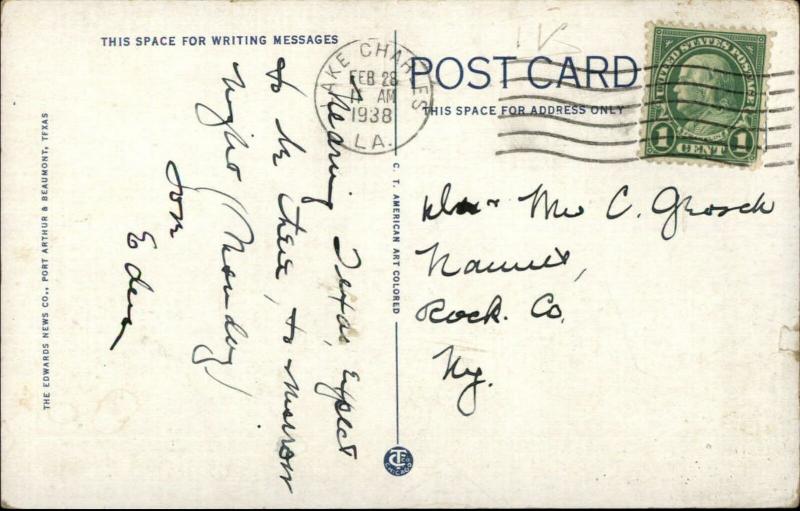 THIS SPACE FOR WRITING MESSAGES
POST CARD
THIS SPACE FOR ADDRESS ONLY
LAKE CHARLES
FEB 28
AM
1938
LA.
UNITED STATES POSTAGE
1 CENT 1
nearing Texas, expect
to be there, to morrow
night (Monday)
Love
Edna
Mr C. Grosch
Nanuet,
Rock. Co.
Ny.
THE EDWARDS NEWS CO., PORT ARTHUR & BEAUMONT, TEXAS
C. T. AMERICAN ART COLORED
CHICAGO